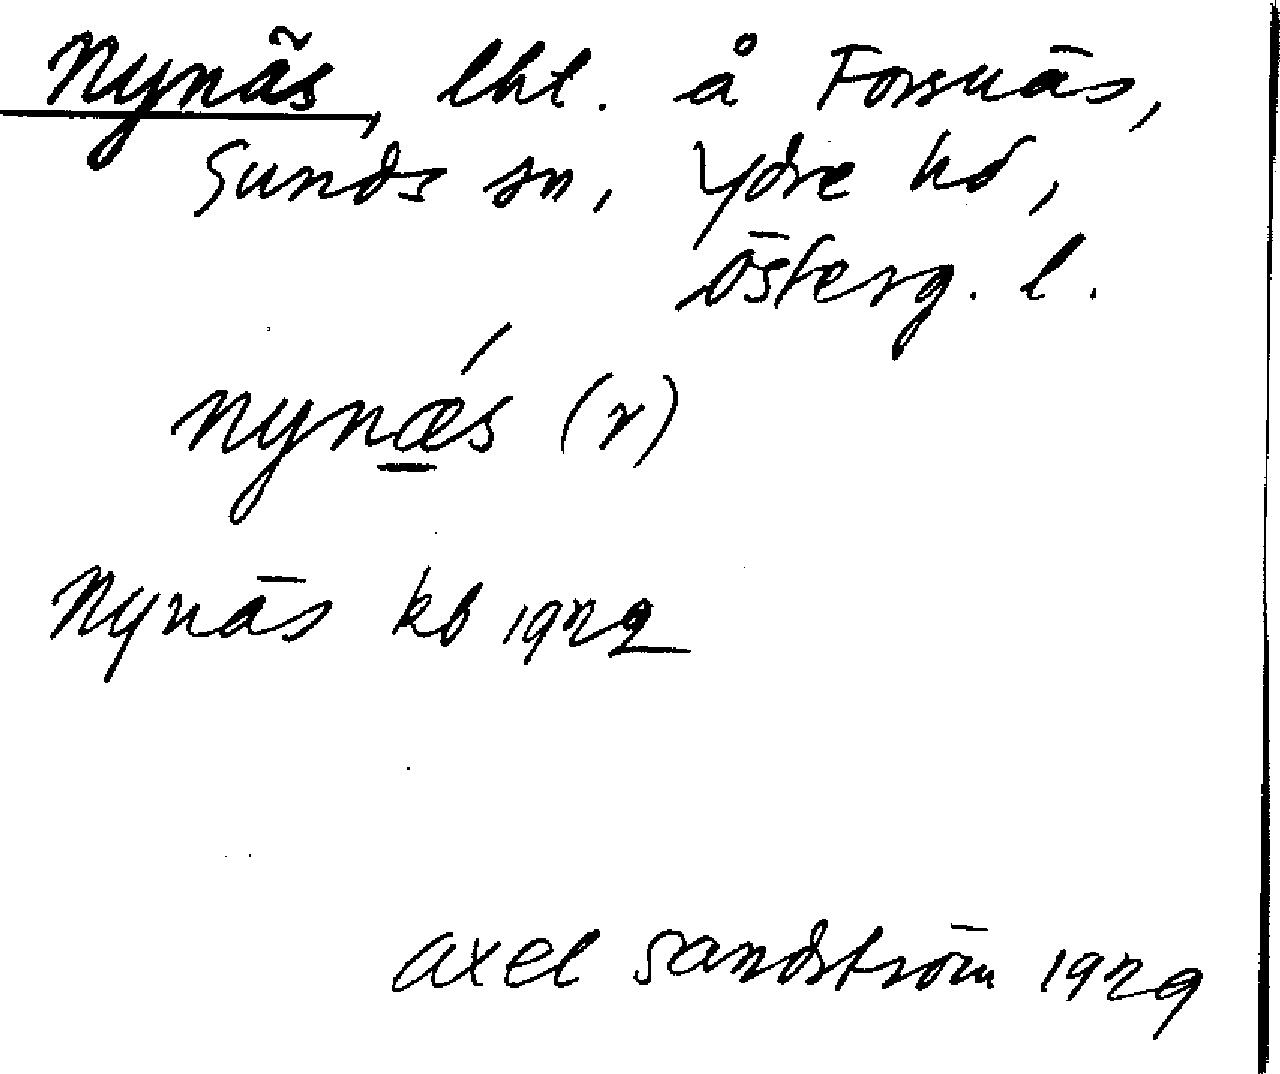 Nynäs, lht. å Forsnäs,
Sunds sn, Ydre hd,
Österg. l.
nynæs (r)
Nynäs kb 1929
Axel Sandström 1929